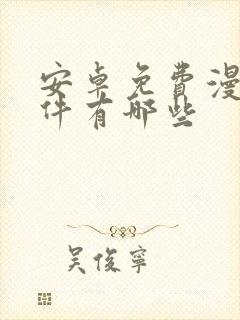 安卓免費漫
件有哪些
吴俊寧